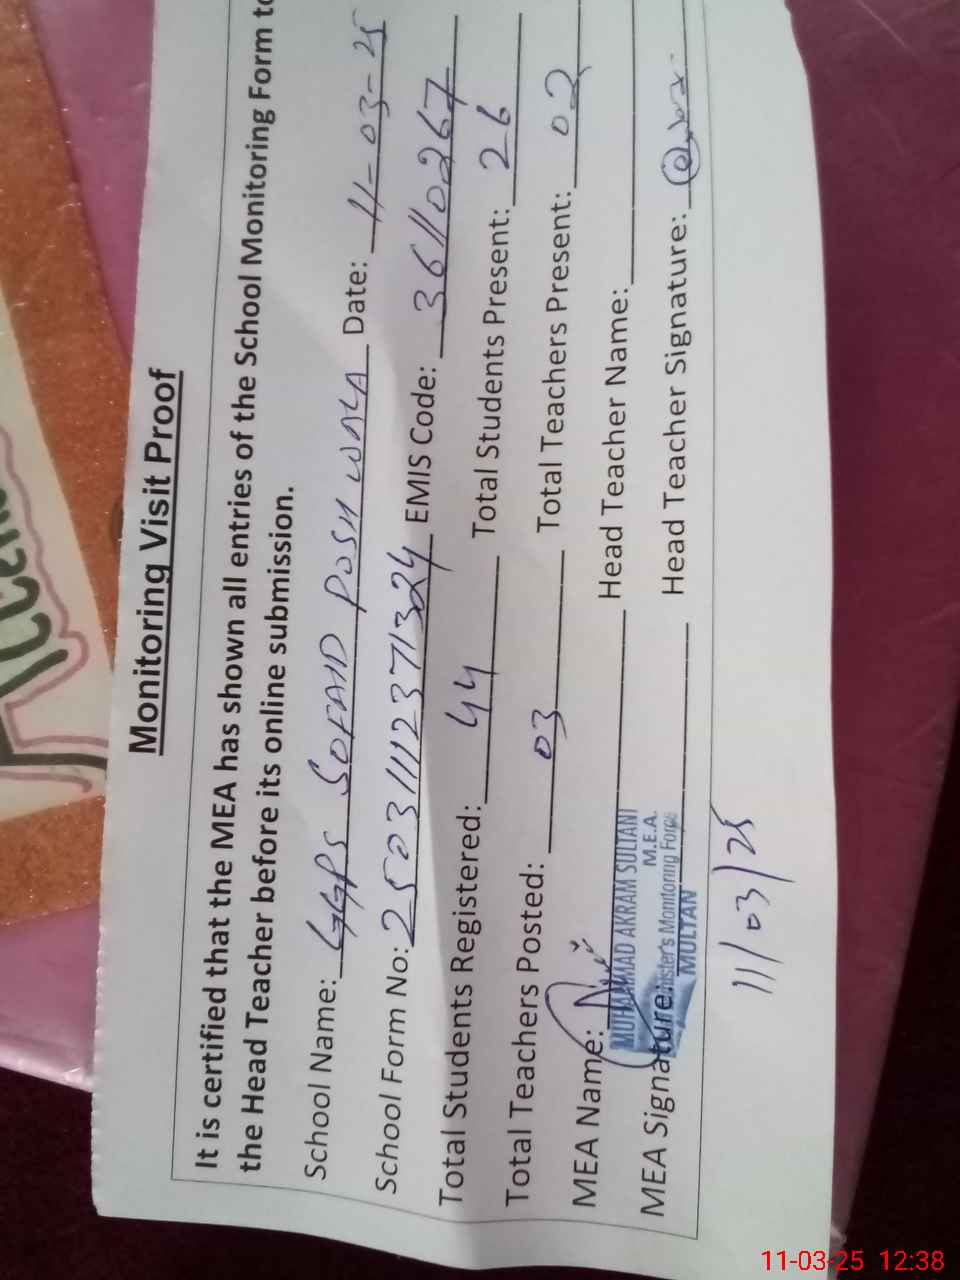 Monitoring Visit Proof
It is certified that the MEA has shown all entries of the School Monitoring Form to
the Head Teacher before its online submission.
School Name: GGPS SOFAID POSH WALA Date: 11-03-25
School Form No: 250311112371324 EMIS Code: 36110267
Total Students Registered: 44 Total Students Present: 26
Total Teachers Posted: 03 Total Teachers Present: 02
MEA Name: Head Teacher Name:
MUHAMMAD AKRAM SULTANI
M.E.A.
Monitoring Force
MULTAN
MEA Signature: Head Teacher Signature:
11/03/25
11-03-25 12:38